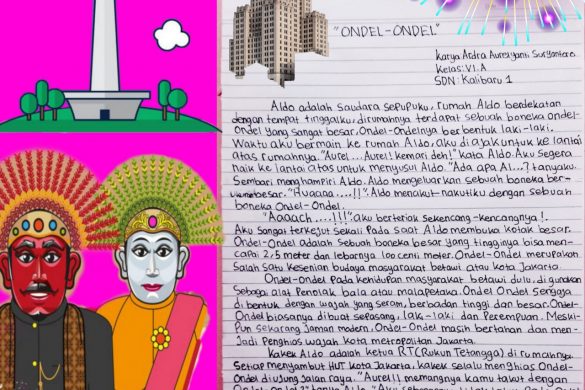 "ONDEL-ONDEL"
Karya Ardra Aureliyanti Suryantera
Kelas: VI.A
SDN: Kalibaru 1
Aldo adalah saudara sepupuku, rumah Aldo berdekatan
dengan tempat tinggalku, dirumahnya terdapat sebuah boneka ondel-
Ondel yang sangat besar, Ondel-Ondelnya berbentuk laki-laki.
Waktu aku bermain ke rumah Aldo, aku diajak untuk ke lantai
atas rumahnya. "Aurel... Aurel! kemari deh!" kata Aldo. Aku segera
naik ke lantai atas untuk menyusul Aldo. "Ada apa Al...? tanyaku.
Sembari menghampiri Aldo. Aldo mengeluarkan sebuah boneka ber-
besar. "Huaaaa....!!". Aldo menakut-nakutiku dengan sebuah
boneka Ondel-Ondel.
"Aaaach....!!!" aku berteriak sekencang-kencangnya!.
Aku sangat terkejut sekali Pada saat Aldo membuka kotak besar.
Ondel-Ondel adalah sebuah boneka besar yang tingginya bisa men-
capai 2,5 meter dan lebarnya 100 centi meter. Ondel-Ondel merupakan
Salah Satu kesenian budaya masyarakat betawi atau kota Jakarta.
Ondel-Ondel Pada kehidupan masyarakat betawi dulu, di gunakan
Sebagai alat Penolak bala atau malapetaka. Ondel Ondel Sengaja
di bentuk dengan wajah yang seram, berbadan tinggi dan besar. Ondel-
Ondel biasanya dibuat sepasang, laki-laki dan Perempuan. Meski-
Pun sekarang Jaman modern, Ondel-Ondel masih bertahan dan men-
Jadi Penghias wajah kota metropolitan Jakarta.
Kakek Aldo adalah ketua RT(Rukun Tetangga) di rumahnya.
Setiap menyambut HUT kota Jakarta, kakek selalu menghias Ondel-
Ondel di ujung jalan raya. "Aurel!! memangnya kamu takut dengan